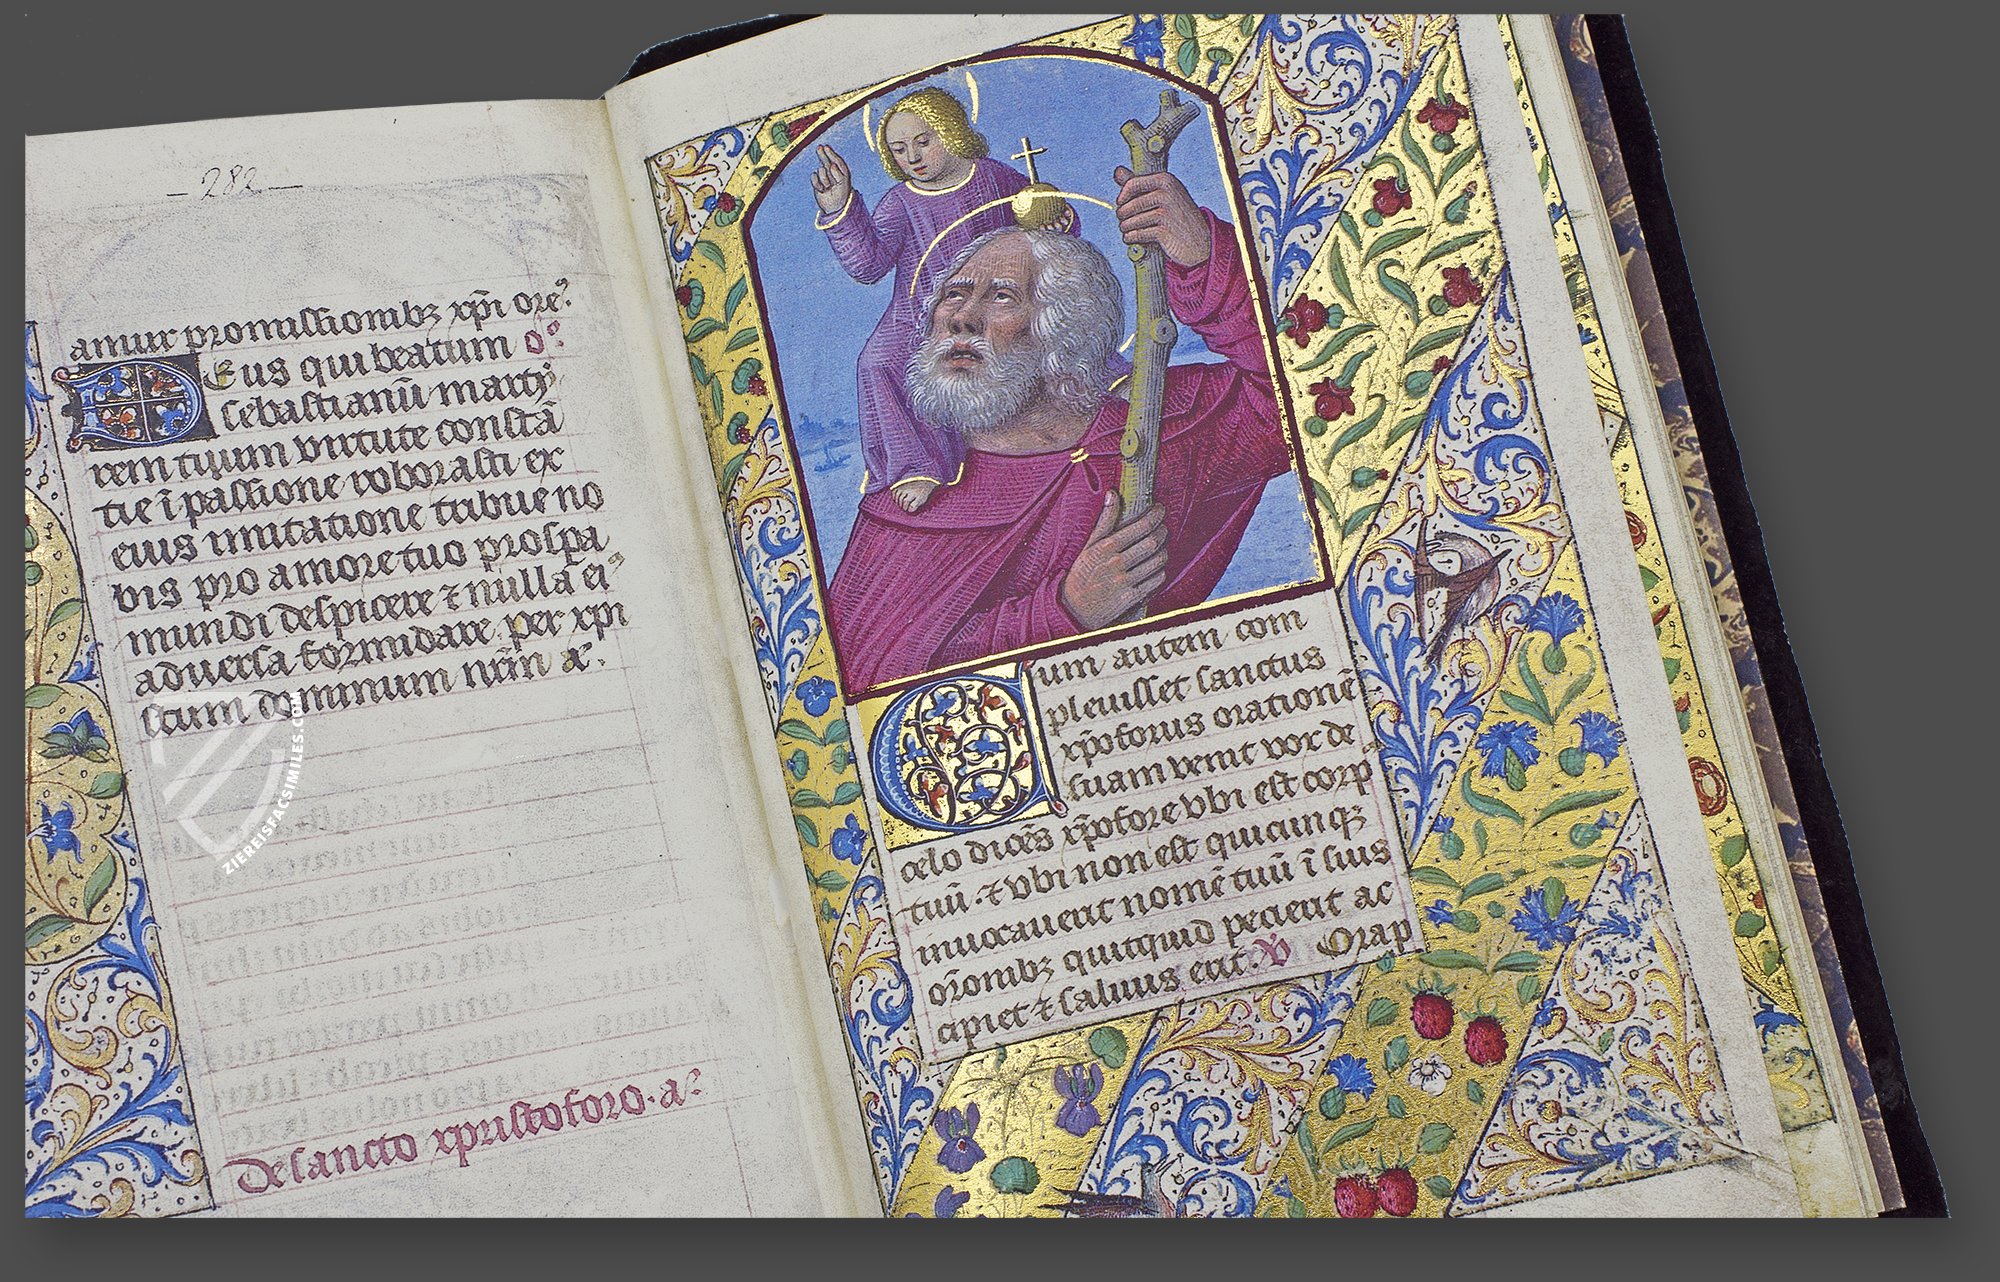 - 282 -
amur promissionibꝫ xp̄i ore᷒.
Deus qui beatum o᷒
sebastianū marty
rem tuum virtute constā
tie ī passione roborasti ex
eius imitatione tribue no
bis pro amore tuo prospa
mundi despicere ⁊ nulla ei᷒
adversa formidare. per xp̄i
stum dominum nr̄m a᷒.
De sancto xpristoforo. a᷒
Cum autem com
plevisset sanctus
xp̄oforus orationē
suam venit vox de
celo dicēs xp̄ofore vbi est corp᷒
tuū. ⁊ vbi non est quicunqꝫ
invocaverit nomē tuū ī suis
or̄onibꝫ quitquid petierit ac
cipiet ⁊ salvus erit. V̷ Orap
ZIEREISFACSIMILES.COM